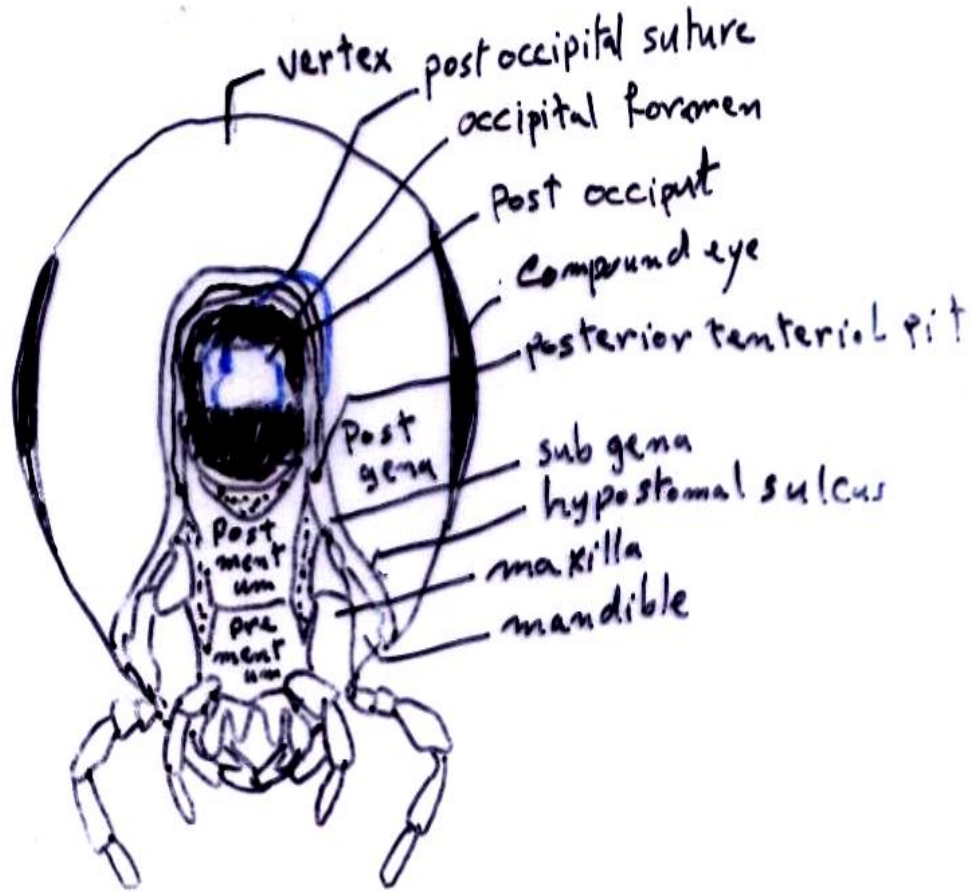 vertex
post occipital suture
occipital foramen
Post occiput
Compound eye
posterior tenterial pit
Post
gena
sub gena
hypostomal sulcus
maxilla
mandible
Post
ment
um
pre
ment
um